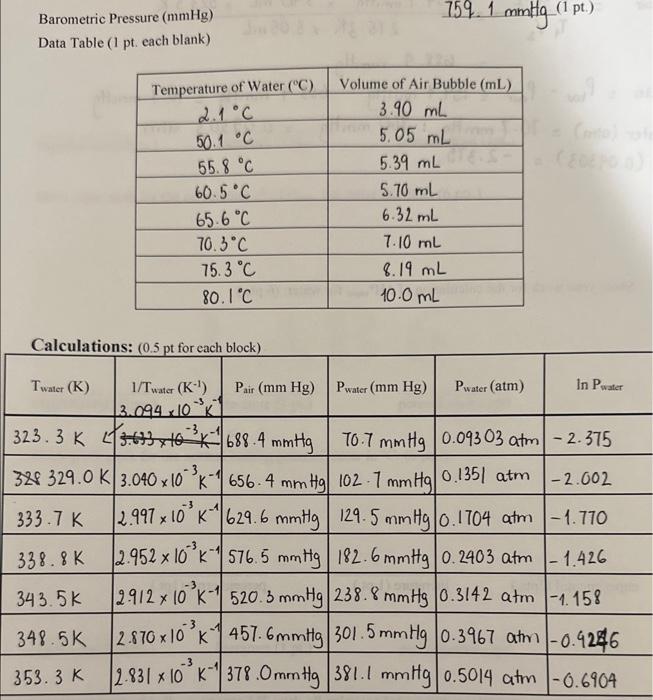 Barometric Pressure (mmHg) 759.1 mmHg (1 pt.)
Data Table (1 pt. each blank)
Temperature of Water (°C) Volume of Air Bubble (mL)
2.1 °C 3.90 mL
50.1 °C 5.05 mL
55.8 °C 5.39 mL
60.5 °C 5.70 mL
65.6 °C 6.32 mL
70.3 °C 7.10 mL
75.3 °C 8.19 mL
80.1 °C 10.0 mL
Calculations: (0.5 pt for each block)
Twater (K) 1/Twater (K⁻¹) Pair (mm Hg) Pwater (mm Hg) Pwater (atm) ln Pwater
3.094 x 10⁻³ K⁻¹
323.3 K 3.633 x 10⁻³ K⁻¹ 688.4 mmHg 70.7 mmHg 0.09303 atm -2.375
328 329.0 K 3.040 x 10⁻³ K⁻¹ 656.4 mmHg 102.7 mmHg 0.1351 atm -2.002
333.7 K 2.997 x 10⁻³ K⁻¹ 629.6 mmHg 129.5 mmHg 0.1704 atm -1.770
338.8 K 2.952 x 10⁻³ K⁻¹ 576.5 mmHg 182.6 mmHg 0.2403 atm -1.426
343.5 K 2.912 x 10⁻³ K⁻¹ 520.3 mmHg 238.8 mmHg 0.3142 atm -1.158
348.5 K 2.870 x 10⁻³ K⁻¹ 457.6 mmHg 301.5 mmHg 0.3967 atm
353.3 K 2.831 x 10⁻³ K⁻¹ 378.0 mmHg 381.1 mmHg 0.5014 atm -0.6904